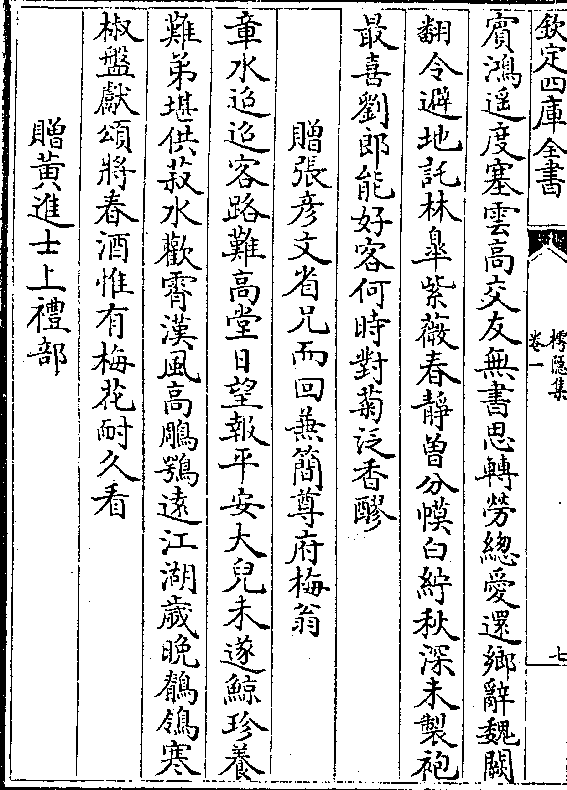 欽定四庫全書
樗隱集
卷一
七
賓鴻遥度塞雲高交友無書思轉勞總愛還鄉辭魏闕
翻令避地託林臯紫薇春靜曽分幙白紵秋深未製袍
最喜劉郎能好客何時對菊泛香醪
贈張彦文省兄而回兼簡尊府梅翁
章水迢迢客路難高堂日望報平安大兒未遂鯨珍養
難弟堪供菽水歡霄漢風高鵰鶚遠江湖歲晚鶺鴒寒
椒盤獻頌將春酒惟有梅花耐久看
贈黄進士上禮部